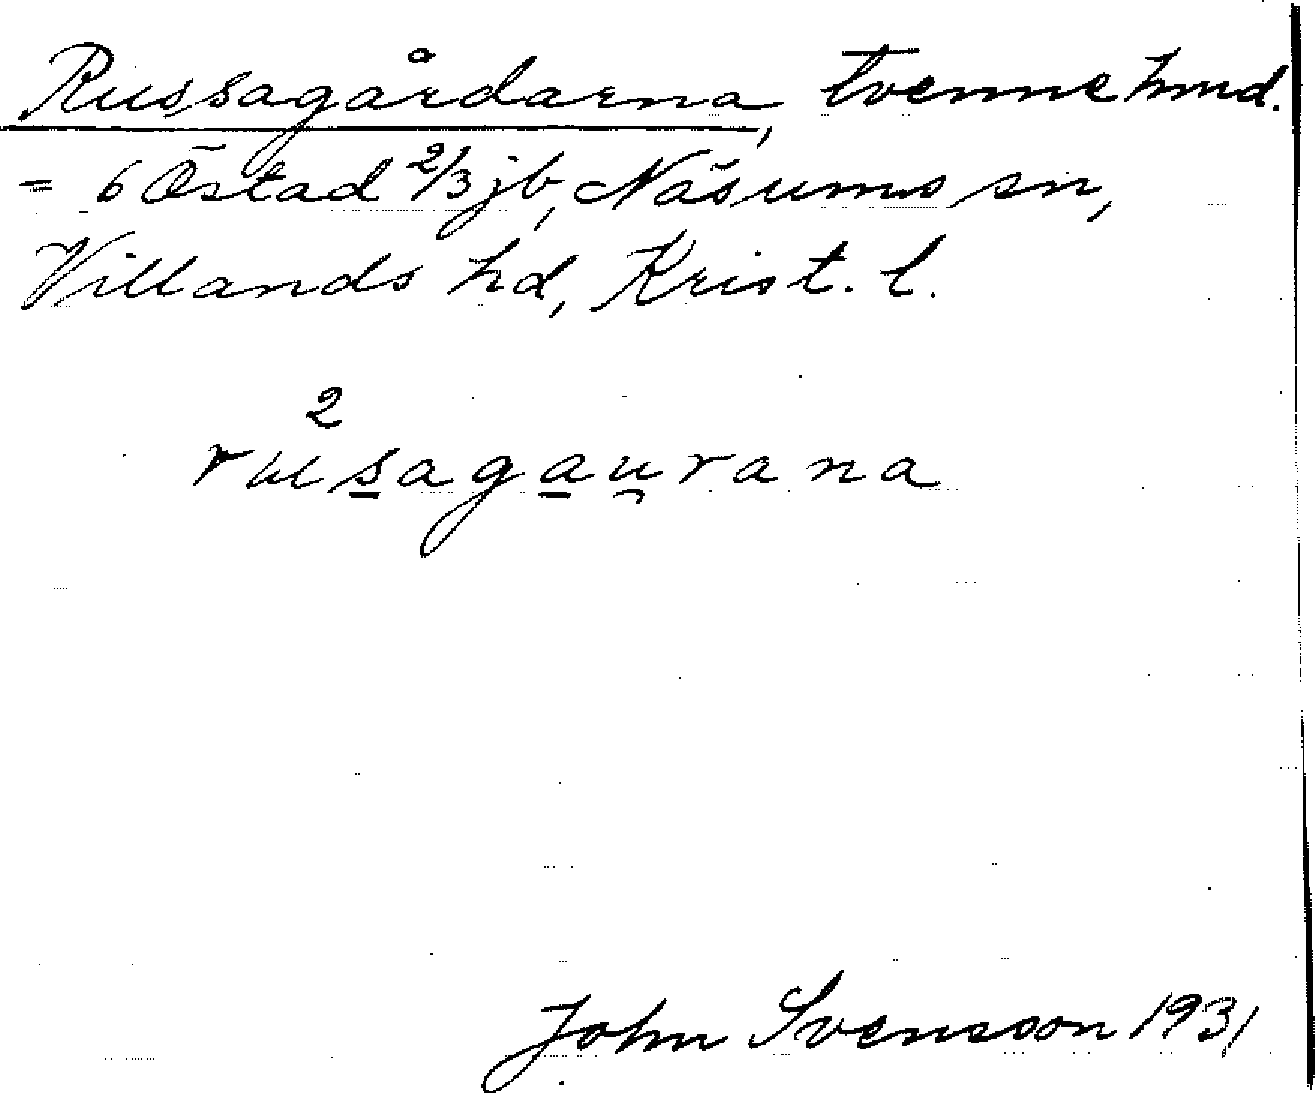 Russagårdarna, tvenne hmd.
= 6 Östad 2/3 jb, Näsums sn,
Villands hd, Krist. l.
2
rusagau̯rana
John Svensson 1931